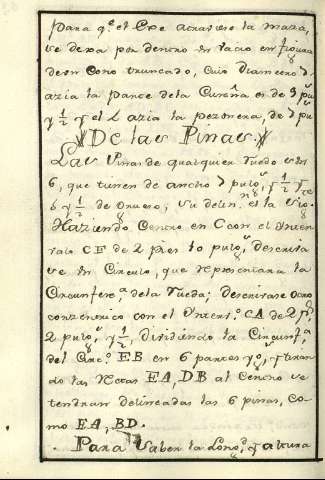 Para q.e el Exe atraviese la maza,
se dexa por dentro un vacio en figura
de un Cono truncado, Cuio Diametro
azia la parte de la Cureña es de 9 pul.
y 1/2 y el L azia la pezonera, de 7 pul
De las Pinas.
Las Pinas de qualquier Ruedo son
6, que tienen de ancho 7 pulg.s y 1/2
6 y 1/2 de Grueso; su delin.n es la sig.e
Haziendo Centro en C con el Inter
valo CF de 2 pies 10 pulg.s, descriva
se un Circulo, que representara la
Circunfere.a de la Rueda; descrivase otro
conzentrico con el Interv.o CA de 2 p.s
2 pulg.s y 1/2, dividiendo la Circunf.a
del Circ.o EB en 6 partes yg.s, y tiran
do las Rectas EA, DB al Centro se
tendran delineadas las 6 pinas, Co-
mo EA, BD.
Para saber la Long.d, y altura